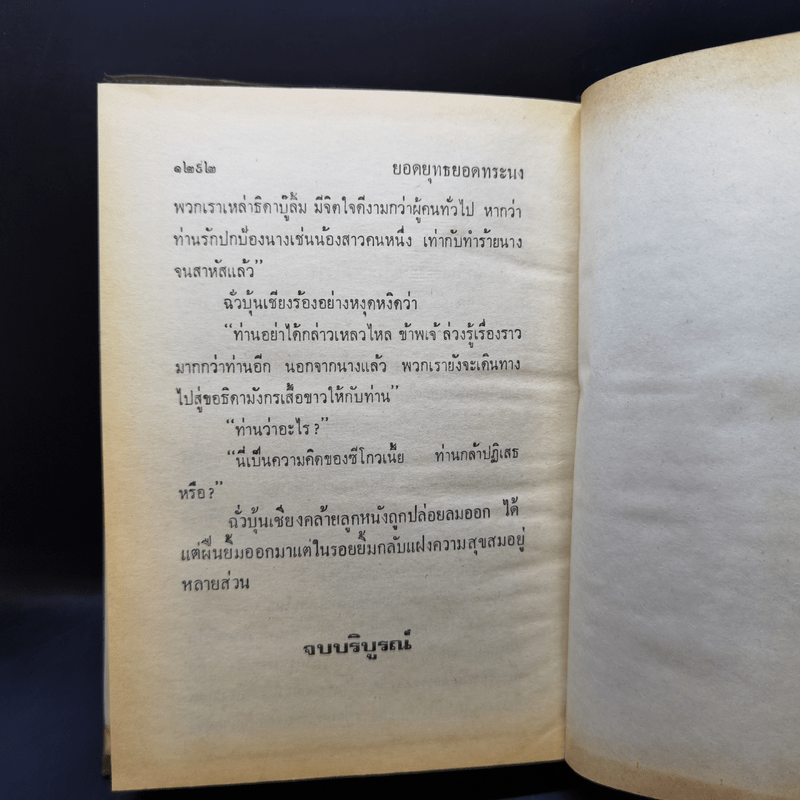 ๑๒๕๒ ยอดยุทธยอดทระนง
พวกเราเหล่าธิดาบู๊ลิ้ม มีจิตใจดีงามกว่าผู้คนทั่วไป หากว่า
ท่านรักปกป้องนางเช่นน้องสาวคนหนึ่ง เท่ากับทำร้ายนาง
จนสาหัสแล้ว”
ฉั่วบุ้นเชียงร้องอย่างหงุดหงิดว่า
“ท่านอย่าได้กล่าวเหลวไหล ข้าพเจ้าล่วงรู้เรื่องราว
มากกว่าท่านอีก นอกจากนางแล้ว พวกเรายังจะเดินทาง
ไปสู่ขอธิดามังกรเสื้อขาวให้กับท่าน”
“ท่านว่าอะไร?”
“นี่เป็นความคิดของซีโกวเนี้ย ท่านกล้าปฏิเสธ
หรือ?”
ฉั่วบุ้นเชียงคล้ายลูกหนังถูกปล่อยลมออก ได้
แต่ฝืนยิ้มออกมาแต่ในรอยยิ้มกลับแฝงความสุขสมอยู่
หลายส่วน
จบบริบูรณ์